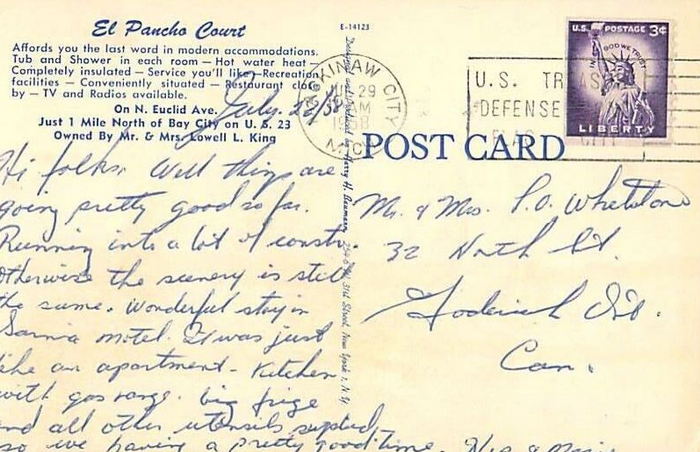 El Pancho Court
Affords you the last word in modern accommodations.
Tub and Shower in each room — Hot water heat —
Completely insulated — Service you'll like — Recreation
facilities — Conveniently situated — Restaurant close
by — TV and Radios available.
On N. Euclid Ave.
Just 1 Mile North of Bay City on U. S. 23
Owned By Mr. & Mrs. Lowell L. King
July 28/58
Hi folks. Well things are
going pretty good so far.
Running into a lot of constr.
Otherwise the scenery is still
the same. Wonderful stay in
Sarnia motel. It was just
like an apartment. Kitchen
with gas range. big frige
and all other utensils supplied
so we having a pretty good time.
E-14123
Harry H. Baumann, 31st Street, New York 1, N.Y.
MACKINAW CITY
29
AM
1958
MICH
U.S. POSTAGE 3¢
IN GOD WE TRUST
LIBERTY
U.S. TREAS
DEFENSE
POST CARD
Mr. & Mrs. P.O. Whetstone
32 North St.
Goderich Ont.
Can.